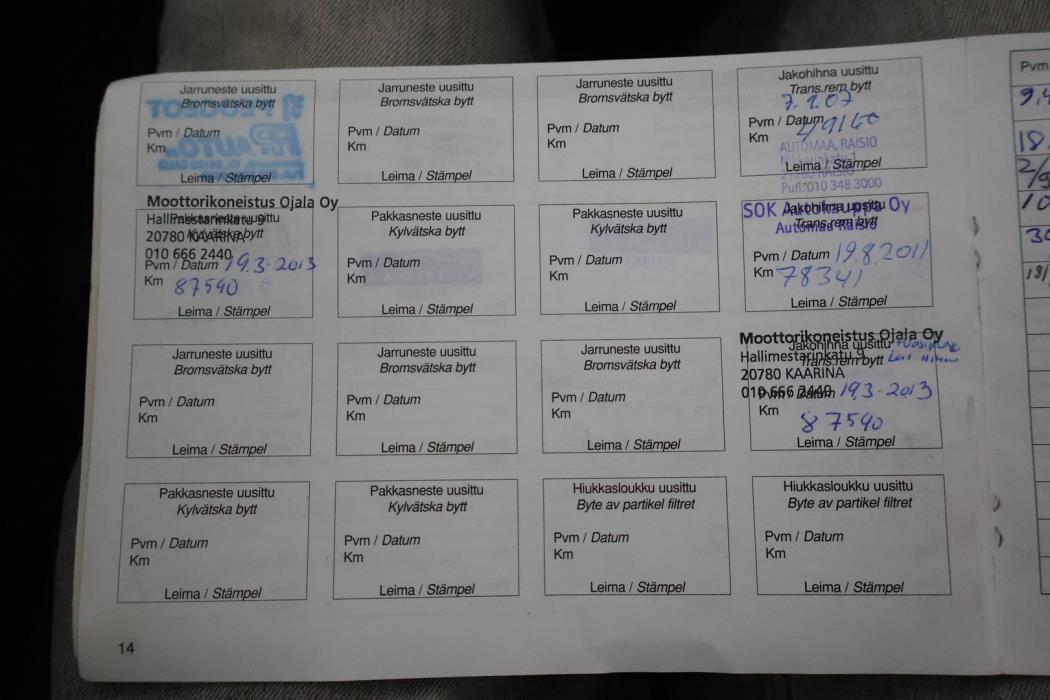 Jarruneste uusittu
Bromsvätska bytt
Pvm / Datum
Km
Leima / Stämpel
Jarruneste uusittu
Bromsvätska bytt
Pvm / Datum
Km
Leima / Stämpel
Jarruneste uusittu
Bromsvätska bytt
Pvm / Datum
Km
Leima / Stämpel
Jakohihna uusittu
Trans.rem bytt
7.1.07
Pvm / Datum
Km 49160
AUTOMAA, RAISIO
Leima / Stämpel
Puh. 010 348 3000
Moottorikoneistus Ojala Oy
Hallimestarinkatu 9
20780 KAARINA
010 666 2440
Pakkasneste uusittu
Kylvätska bytt
Pvm / Datum 19.3-2013
Km 87590
Leima / Stämpel
Pakkasneste uusittu
Kylvätska bytt
Pvm / Datum
Km
Leima / Stämpel
Pakkasneste uusittu
Kylvätska bytt
Pvm / Datum
Km
Leima / Stämpel
SOK Autokauppa Oy
Automaa Raisio
Jakohihna uusittu
Trans.rem bytt
Pvm / Datum 19.8.2011
Km 78341
Leima / Stämpel
Jarruneste uusittu
Bromsvätska bytt
Pvm / Datum
Km
Leima / Stämpel
Jarruneste uusittu
Bromsvätska bytt
Pvm / Datum
Km
Leima / Stämpel
Jarruneste uusittu
Bromsvätska bytt
Pvm / Datum
Km
Leima / Stämpel
Moottorikoneistus Ojala Oy
Hallimestarinkatu 9
20780 KAARINA
010 666 2440
Jakohihna uusittu
Trans.rem bytt
Pvm / Datum 19.3-2013
Km
87590
Leima / Stämpel
Pakkasneste uusittu
Kylvätska bytt
Pvm / Datum
Km
Leima / Stämpel
Pakkasneste uusittu
Kylvätska bytt
Pvm / Datum
Km
Leima / Stämpel
Hiukkasloukku uusittu
Byte av partikel filtret
Pvm / Datum
Km
Leima / Stämpel
Hiukkasloukku uusittu
Byte av partikel filtret
Pvm / Datum
Km
Leima / Stämpel
14
Pvm